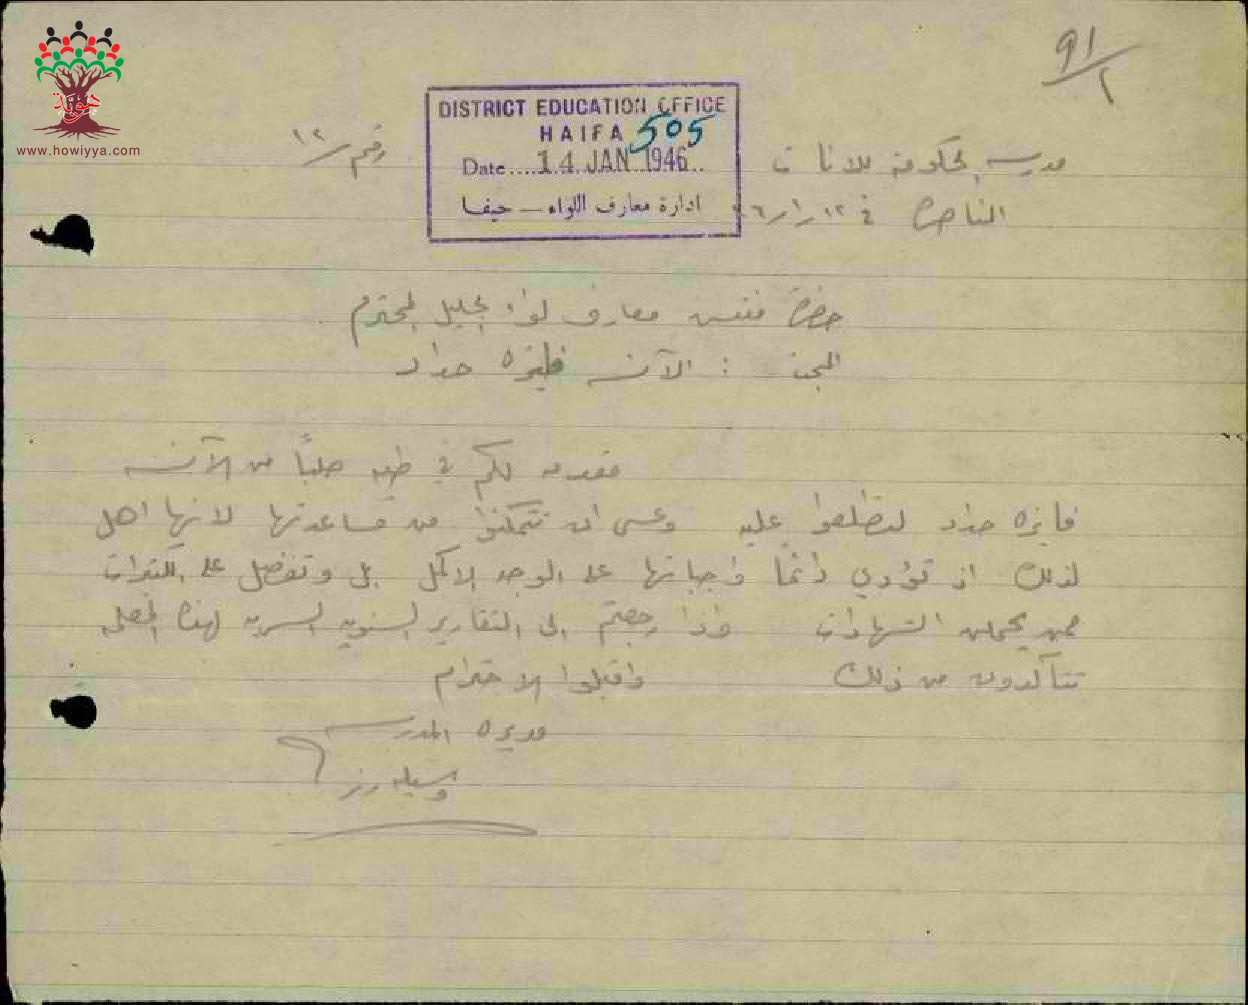 ٩١/٢
هوية
www.howiyya.com
DISTRICT EDUCATION OFFICE
HAIFA 505
Date....14 JAN 1946..
ادارة معارف اللواء — حيفا
رقم ١٢/
مدرسة الحكومة للاناث
الناصرة في ١٢/١/٤٦
حضرة مفتش معارف لواء الجليل المحترم
المبحث : الآنسة فايزه حداد
مقدمه لكم في طيه طلباً من الآنسة
فايزه حداد لتطلعوا عليه وعسى ان تتمكنوا من مساعدتها لانها اهل
لذلك اذ تؤدي دائماً واجباتها على الوجه الاكمل بل وتفضل على الكثيرات
ممن يحملن الشهادات واذا رجعتم الى التقارير السنويه السريه لهذه المعلمه
تتأكدون من ذلك واقبلوا الاحترام
مديرة المدرسة
وسيله